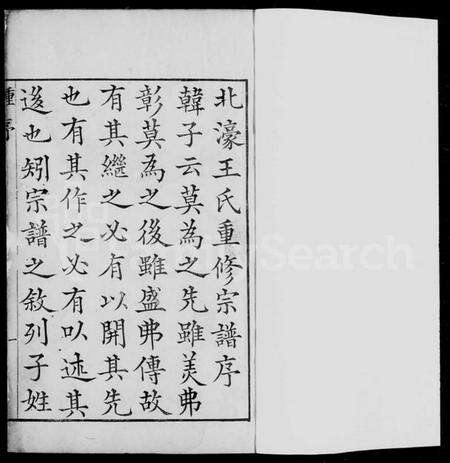 北濠王氏重修宗譜序
韓子云莫為之先雖美弗
彰莫為之後雖盛弗傳故
有其繼之必有以開其先
也有其作之必有以述其
後也矧宗譜之敘列子姓
重序
一
FamilySearch